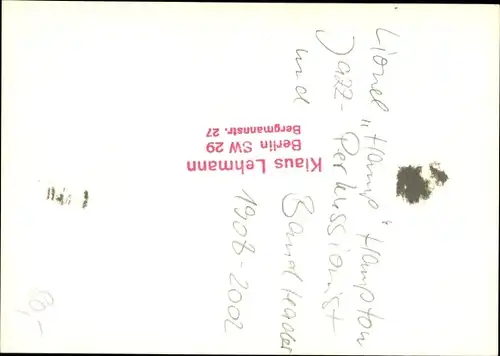 Lionel "Hamp" Hampton
Jazz - Perkussionist
und Bandleader
1908-2002
Klaus Lehmann
Berlin SW 29
Bergmannstr. 27